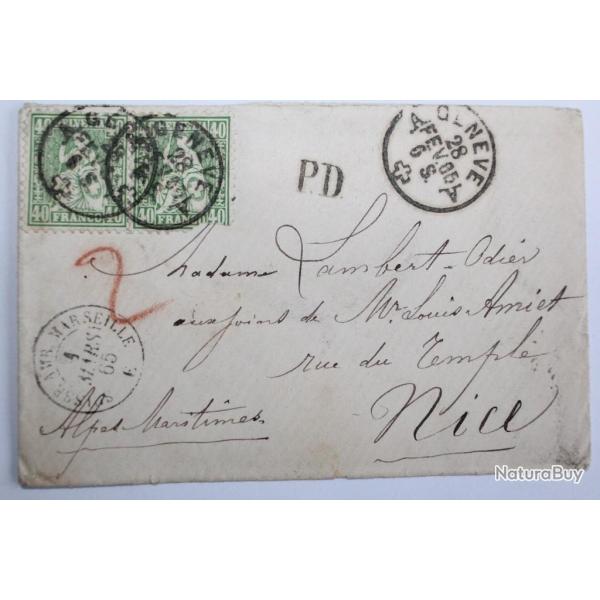 40 40
40 FRANCO 40
40
40 FRANCO 40
GENÈVE
28
GENÈVE
28
FEV 65
6 S.
A A
P.D.
2
Madame Lambert-Odier
aux soins de Mr. Louis Amiet
rue du Temple
Nice
Alpes Maritimes
MARSEILLE
1
MARS
65
NaturaBuy